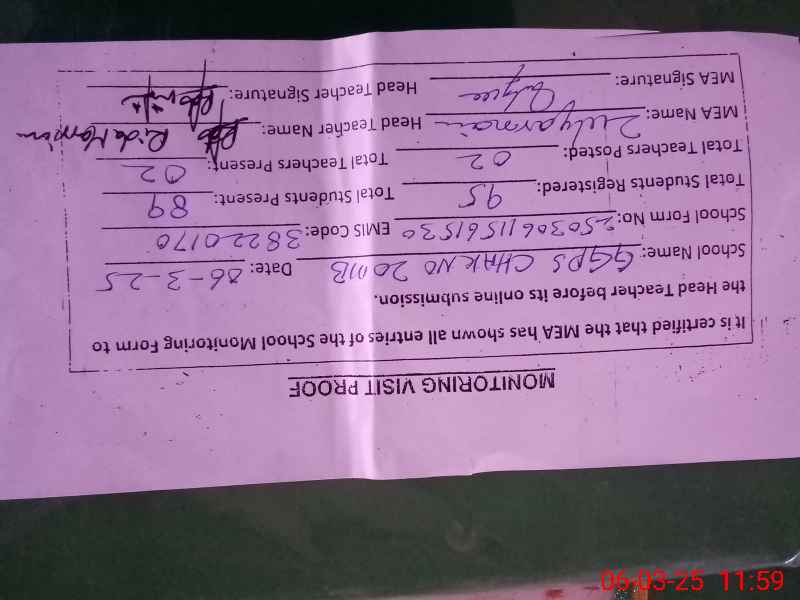 MONITORING VISIT PROOF
It is certified that the MEA has shown all entries of the School Monitoring Form to
the Head Teacher before its online submission.
School Name: GGPS CHAK NO 20 MB Date: 06-3-25
School Form No: 25030611561530 EMIS Code: 38220170
Total Students Registered: 95 Total Students Present: 89
Total Teachers Posted: 02 Total Teachers Present: 02
MEA Name: Head Teacher Name: Rida
MEA Signature: Head Teacher Signature:
06-03-25 11:59